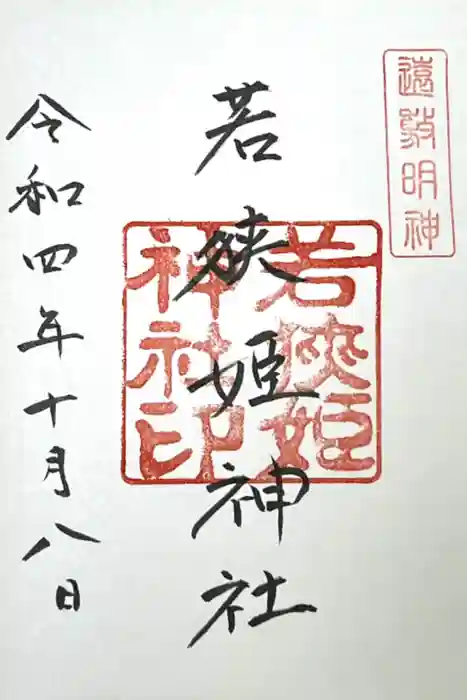 遠敷明神
若狭姫神社
若狭姫
神社印
令和四年十月八日